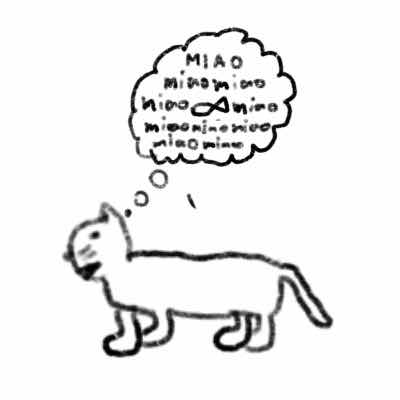 MIAO
miaomiao
miao miao
miaomiaomiao
miao miao